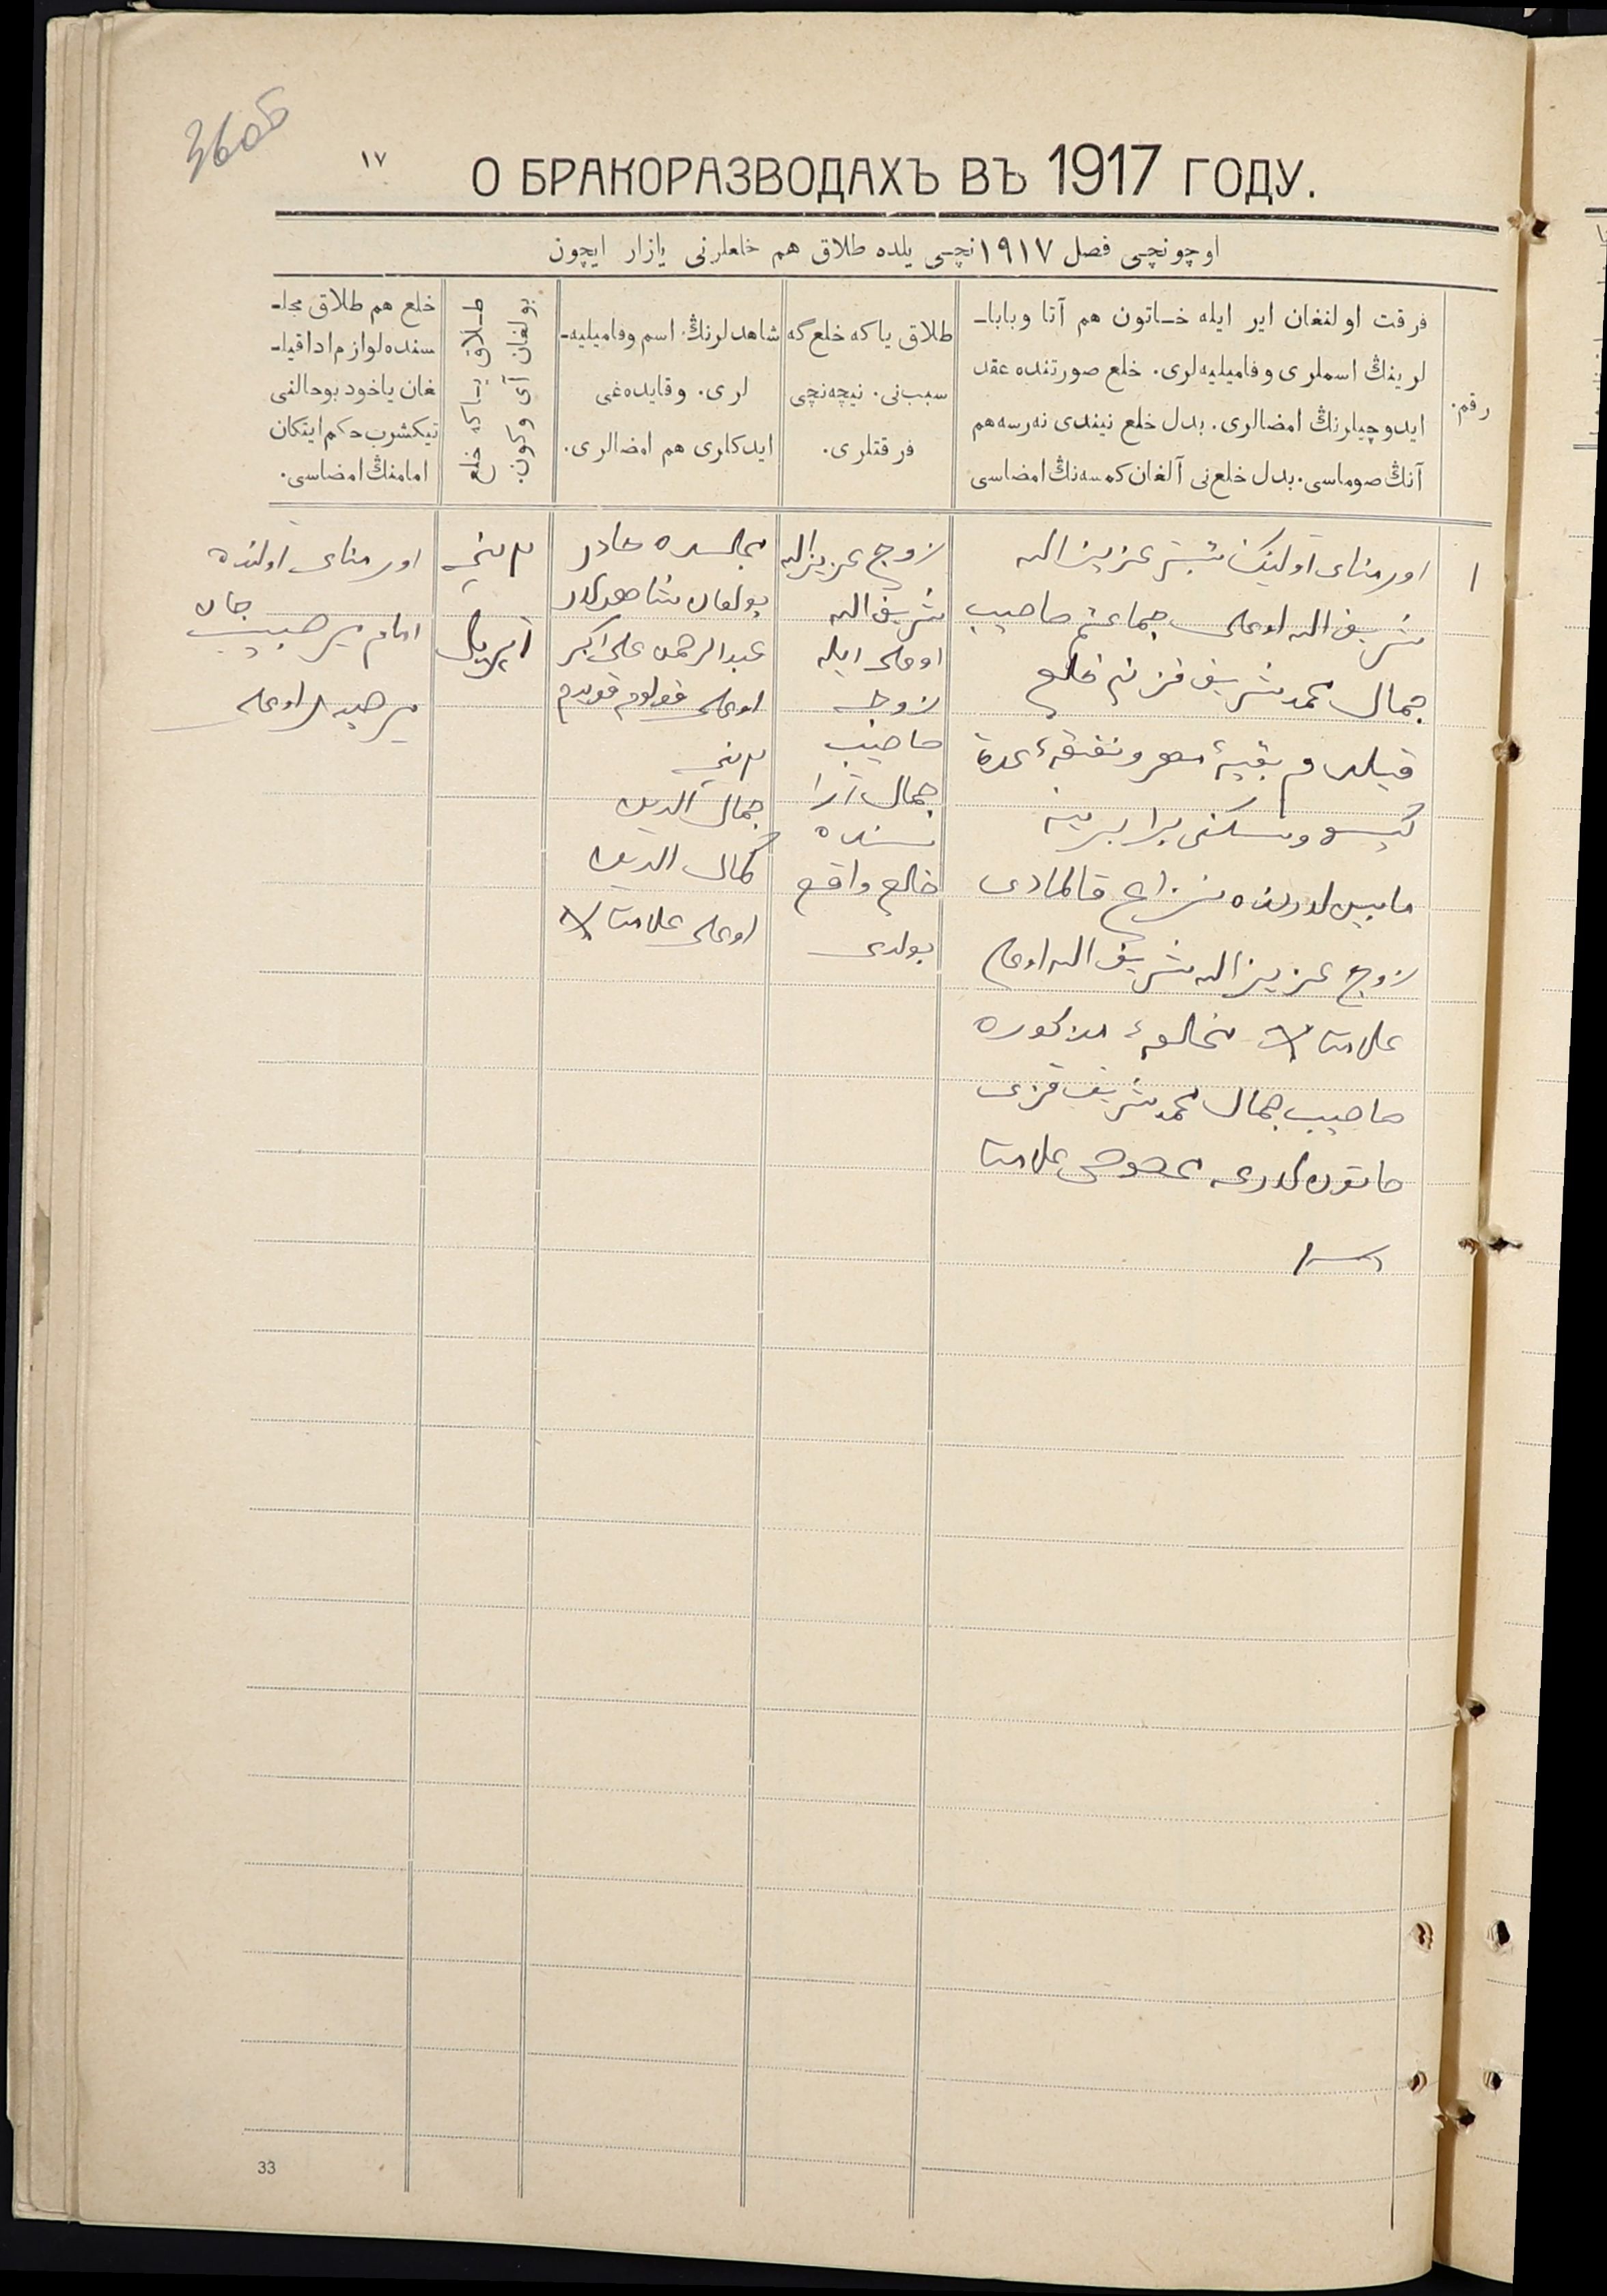 36об
١٧
О БРАКОРАЗВОДАХЪ ВЪ 1917 ГОДУ.
اوچونچی فصل ١٩١٧نچی یلده طلاق هم خلعلرنی یازار ایچون
رقم.
فرقت اولنغان ایر ایله خـاتون هم آتا وباباـ
لرینڭ اسملری وفامیلیه‌لری. خلع صورتنده عقد
ایدوچیلرنڭ امضالری. بدل خلع نیندی نه‌رسه هم
آنڭ صوماسی. بدل خلعنی آلغان کمسه‌نڭ امضاسی
طلاق یاکه خلع گه
سبب‌نی. نیچه‌نچی
فرقتلری.
شاهدلرنڭ اسم وفامیلیه‌ـ
لری. وقایده‌غی
ایدکلری هم امضالری.
طـلاق یـاکه خلع
بولغان آی وکون.
خلع هم طلاق مجلـ
سنده لوازم ادا قیلـ
غان یاخود بو حالنی
تیکشرب حکم ایتکان
امامنڭ امضاسی.
١
اورمنای اولینک عزیز الله
شریف الله اوغلی جماعتم صاحب
جمال محمد شریف قزنی خلع
قیلدم بقیهٔ مهر ونفقهٔ عدة
وسکنی برابرینه
مابینلرنده نزاع قالمادی
زوج عزیز الله شریف الله اوغلی
علامتا مخالعهٔ مذکوره
صاحب جمال محمد شریف قزی
علامتا
زوج عزیز الله
شریف الله
اوغلی ایله
زوجه
صاحب
جمال آرا
سنده
خلع واقع
بولدی
مجلسده حاضر
بولغان شاهدلر
عبدالرحمن علی اکبر
اوغلی قولوم قویدم
٢ نچی
جمال الدین
کمال الدین
اوغلی علامتا
٢ نچی
آپریل
اورمنای اولنده
امام میرحبیب جان
اوغلی
33